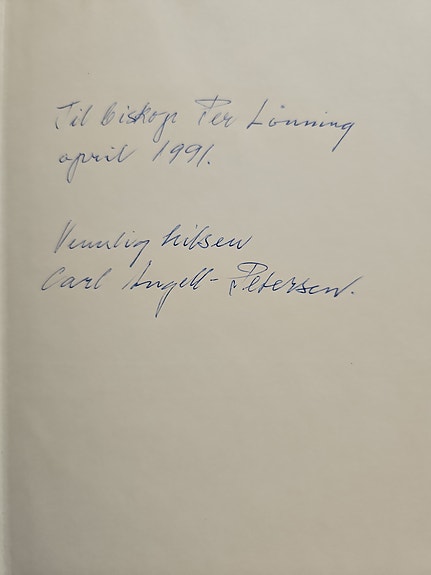 Til biskop Per Lønning
april 1991.
Vennlig hilsen
Carl Angell-Petersen.